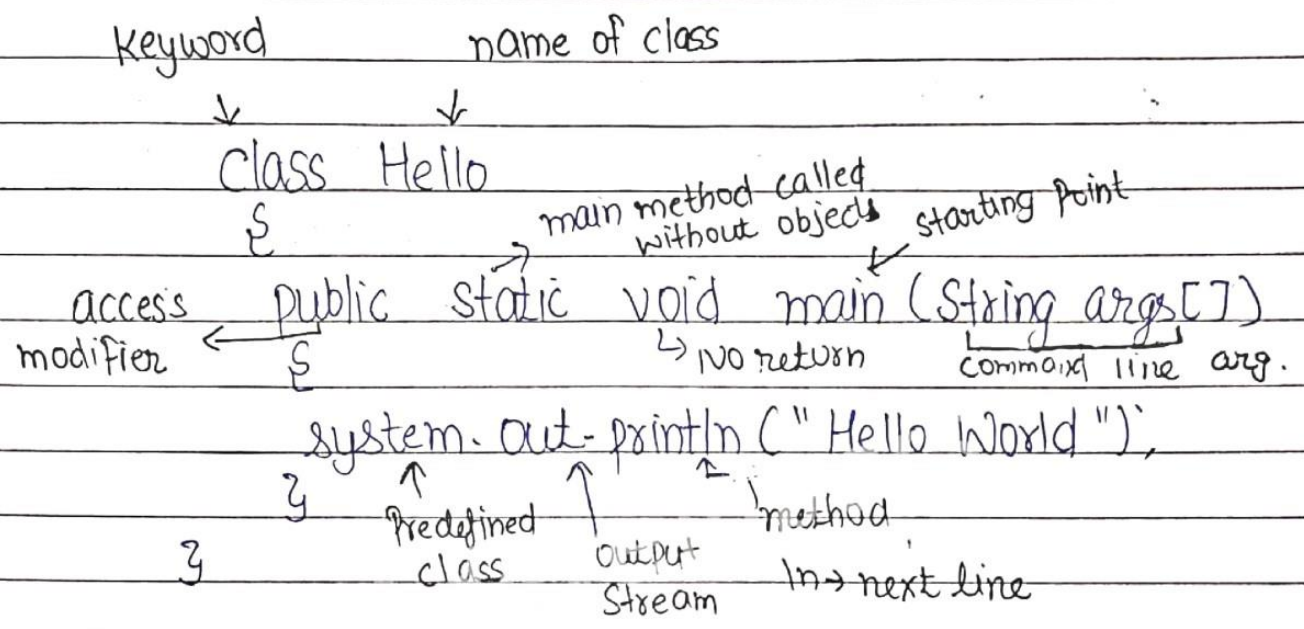 Keyword name of class
class Hello
{
main method called
without objects
starting point
access modifier
public static void main (String args[])
{
No return
command line arg.
system.out.println ("Hello World");
}
Predefined class
output Stream
method
ln→ next line
}